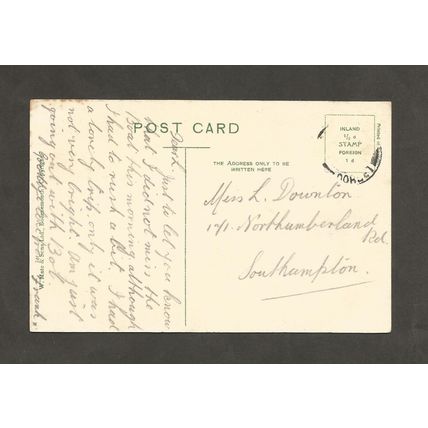 POST CARD
THE ADDRESS ONLY TO BE
WRITTEN HERE
INLAND
½ d
STAMP
FOREIGN
1 d
Miss L. Downton
171. Northumberland
Rd.
Southampton.
Just to let you know
that I did not miss the
Boat this morning although
I had to rush a bit. I had
a lovely trip only it was
not very bright. Am just
going out with Bob
Frank.